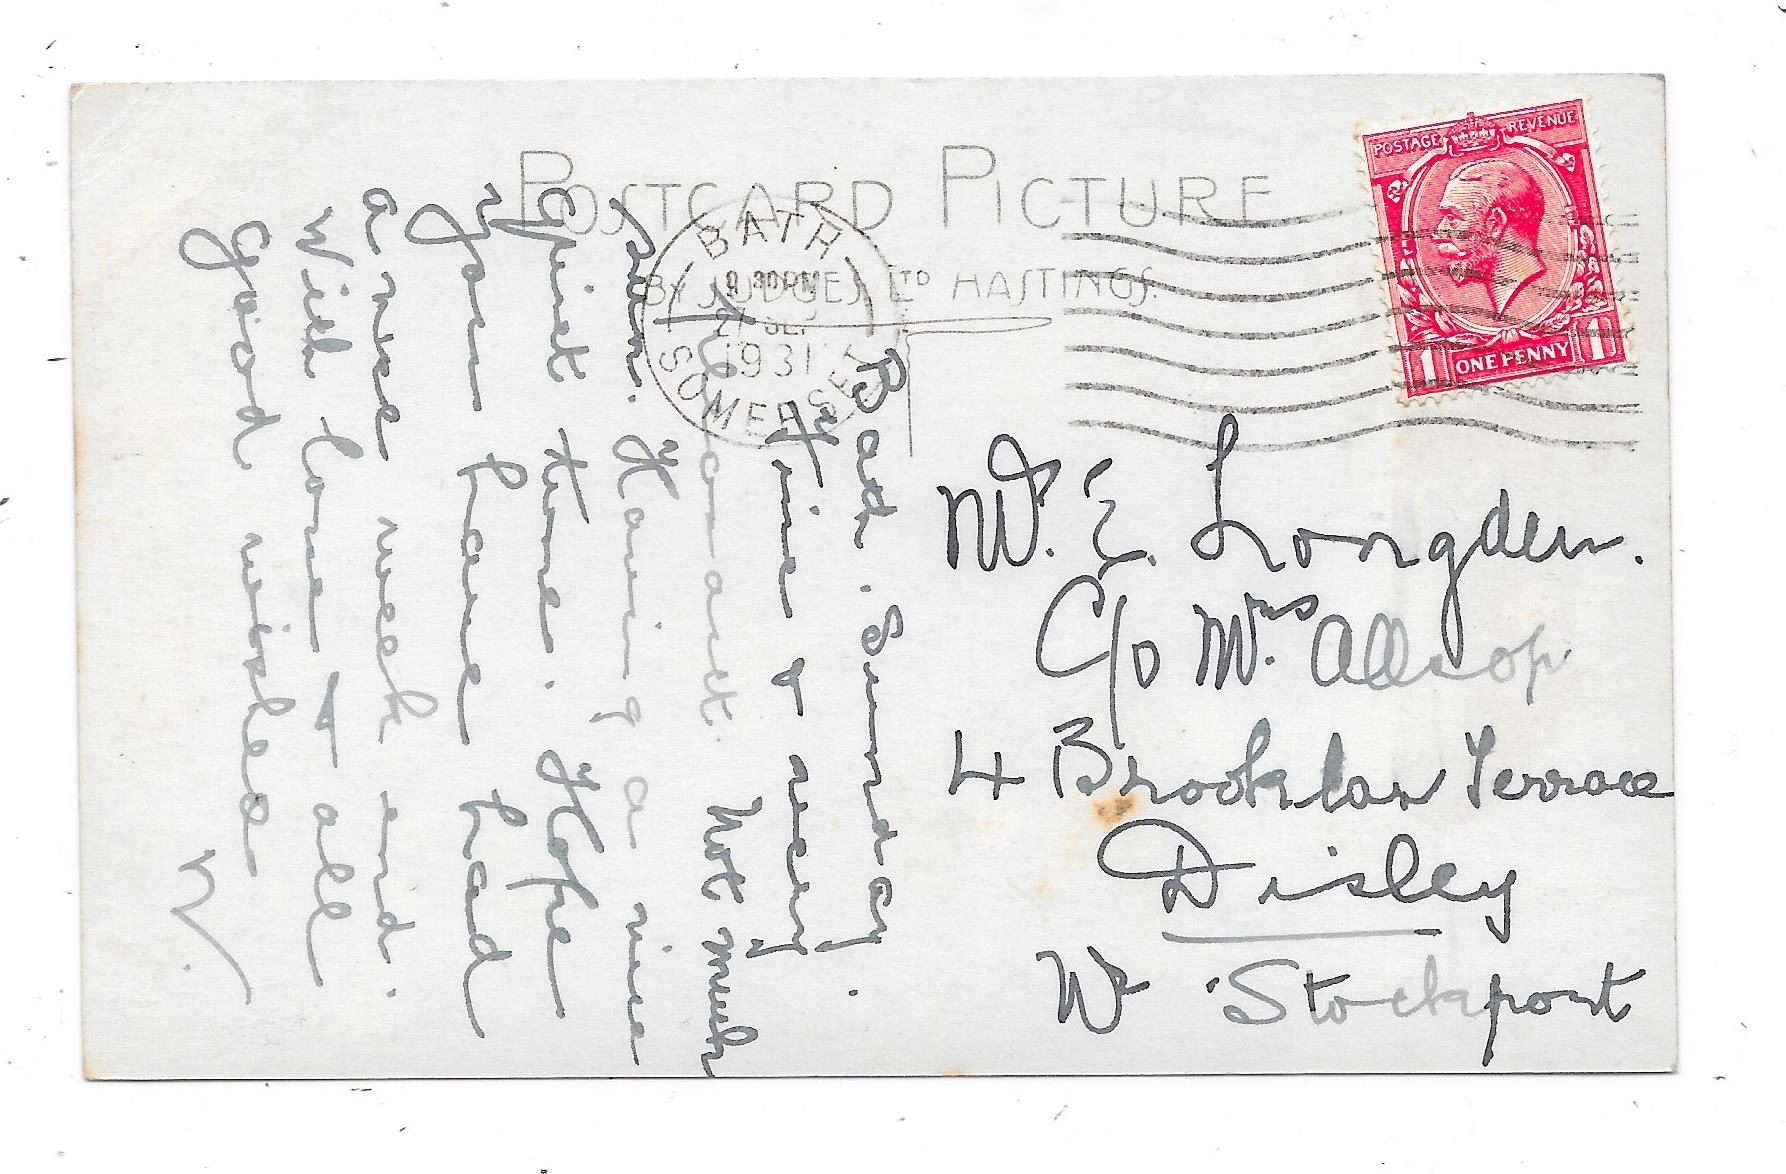 POSTCARD PICTURE
BY JUDGES LTD HASTINGS.
BATH
9 30 PM
27 SEP
1931
SOMERSET
POSTAGE REVENUE
1 ONE PENNY 1
Bath. Sunday.
Fine & very
pleasant. Not much
sun. Having a nice
quiet time. Hope
you have had
a nice week end.
With love & all
good wishes
N.
Mr. E. Longden.
C/o Mrs. Allsop
4 Brooklan Terrace
Disley
Nr Stockport